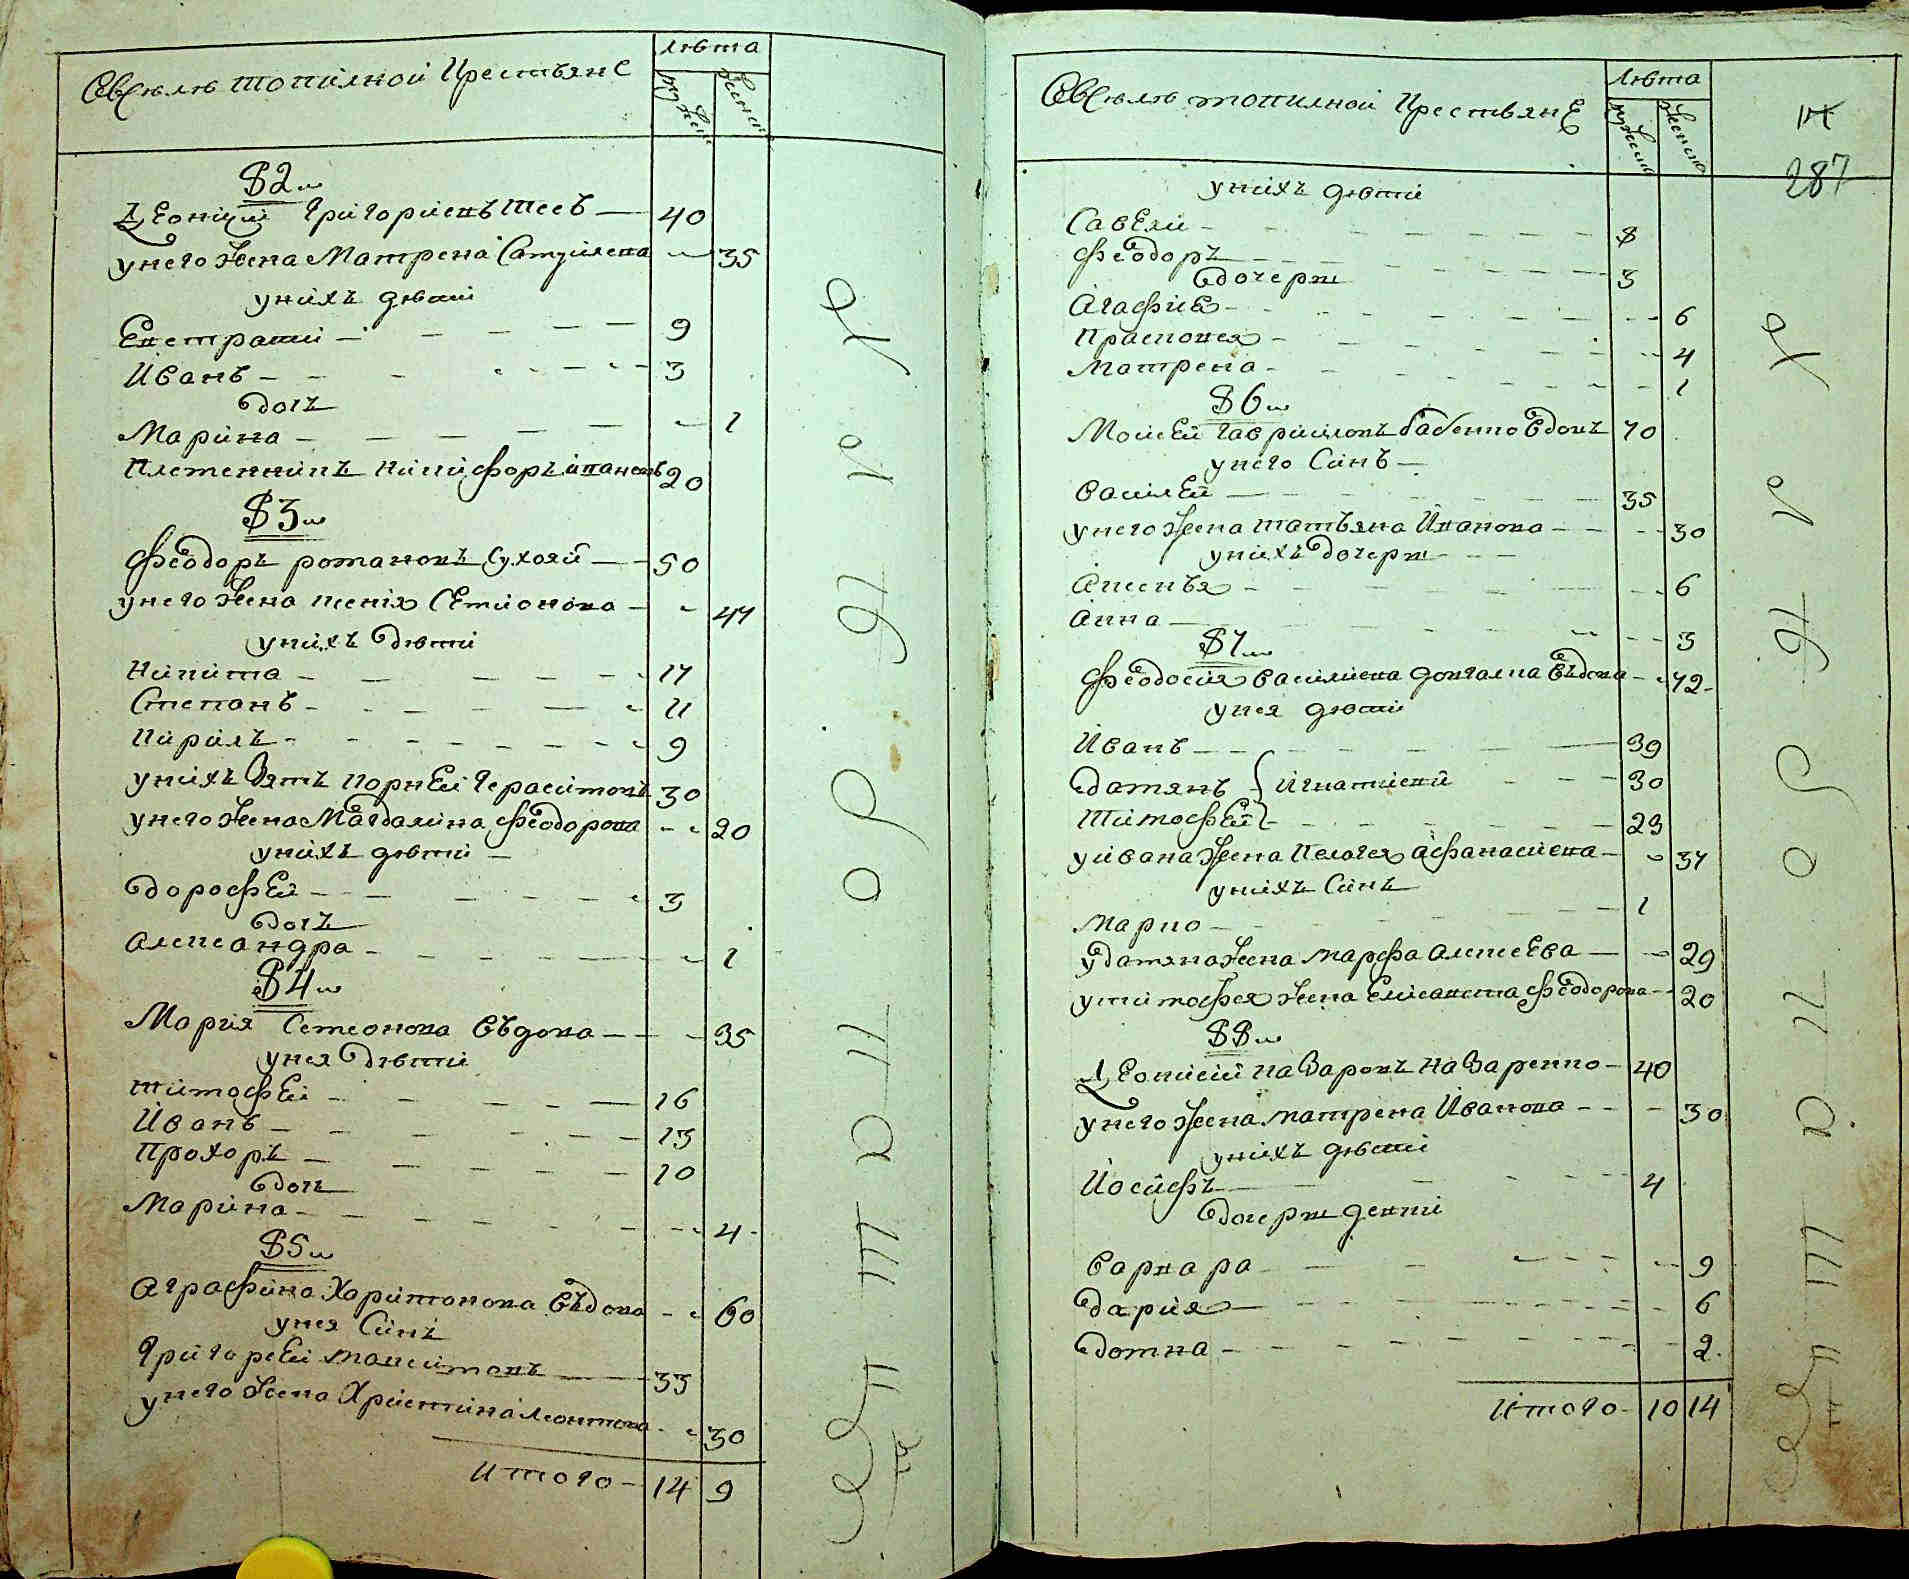 Въ селѣ топилной крестьяне
лѣта
мужеск
женск
§ 2
Леонтий Григориевъ
40
у него жена Матрена Самуилева
35
у нихъ дѣти
Евстратий
9
Иванъ
3
дочь
Марина
1
племенникъ Никифоръ Ивановъ
20
§ 3
Феодоръ Романовъ Сухой
50
у него жена Ксения Семионова
47
у нихъ дѣти
Никита
17
Степанъ
11
Кирилъ
9
у нихъ зять Корней Герасимовъ
30
у него жена Магдалина Феодорова
20
у нихъ дѣти
Дорофей
3
дочь
Александра
1
§ 4
Мария Семеонова въдова
35
у нея дѣти
Тимофей
16
Иванъ
13
Прохоръ
10
дочь
Марина
4
§ 5
Аграфина Харитонова въдова
60
у нея синъ
Григорей Максимовъ
33
у него жена Христина Леонтова
30
итого 14 9
Въ селѣ топилной крестьяне
лѣта
мужеск
женска
287
у нихъ дѣти
Савели
8
Феодоръ
3
дочери
Агафия
6
Прасковея
4
Матрена
1
§ 6
Моисей Гавриловъ Бабенко вдовъ
70
у него синъ
Василей
35
у него жена Татьяна Иванова
30
у нихъ дочери
Аксенья
6
Анна
3
§ 7
Феодосия Василиева Довгалка въдова
72
у нея дѣти
Иванъ
39
Дамянъ Игнатиеви
30
Тимофей
23
у Ивана жена Пелагея Афанасиева
37
у нихъ синъ
Марко
1
у Дамяна жена Марфа Алексеева
29
у Тимофея жена Елисавета Феодорова
20
§ 8
Леонтий Назаровъ Назаренко
40
у него жена Матрена Иванова
30
у нихъ дѣти
Иосифъ
4
дочери
Варвара
9
Дария
6
Домна
2
итого 10 14